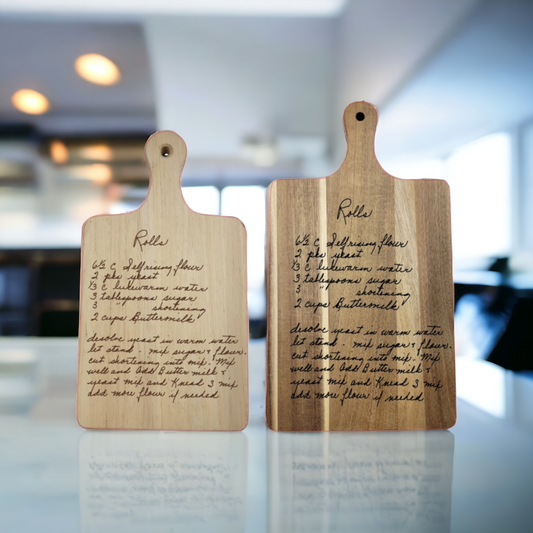 Rolls
6½ C Selfrising flour
2 pks yeast
⅓ C lukewarm water
3 tablespoons sugar
3 " shortening
2 cups Buttermilk
desolve yeast in warm water
let stand - mix sugar & flour.
cut shortening into mix. Mix
well and add Butter milk &
yeast mix and Knead 3 mix
add more flour if needed
Rolls
6½ C Selfrising flour
2 pks yeast
⅓ C lukewarm water
3 tablespoons sugar
3 " shortening
2 cups Buttermilk
desolve yeast in warm water
let stand - mix sugar & flour.
cut shortening into mix. Mix
well and add Butter milk &
yeast mix and Knead 3 mix
add more flour if needed